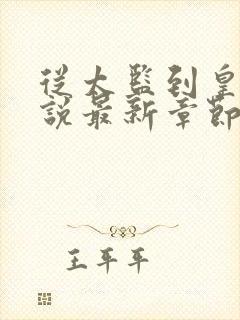 從太監到皇
說最新章節
王平平